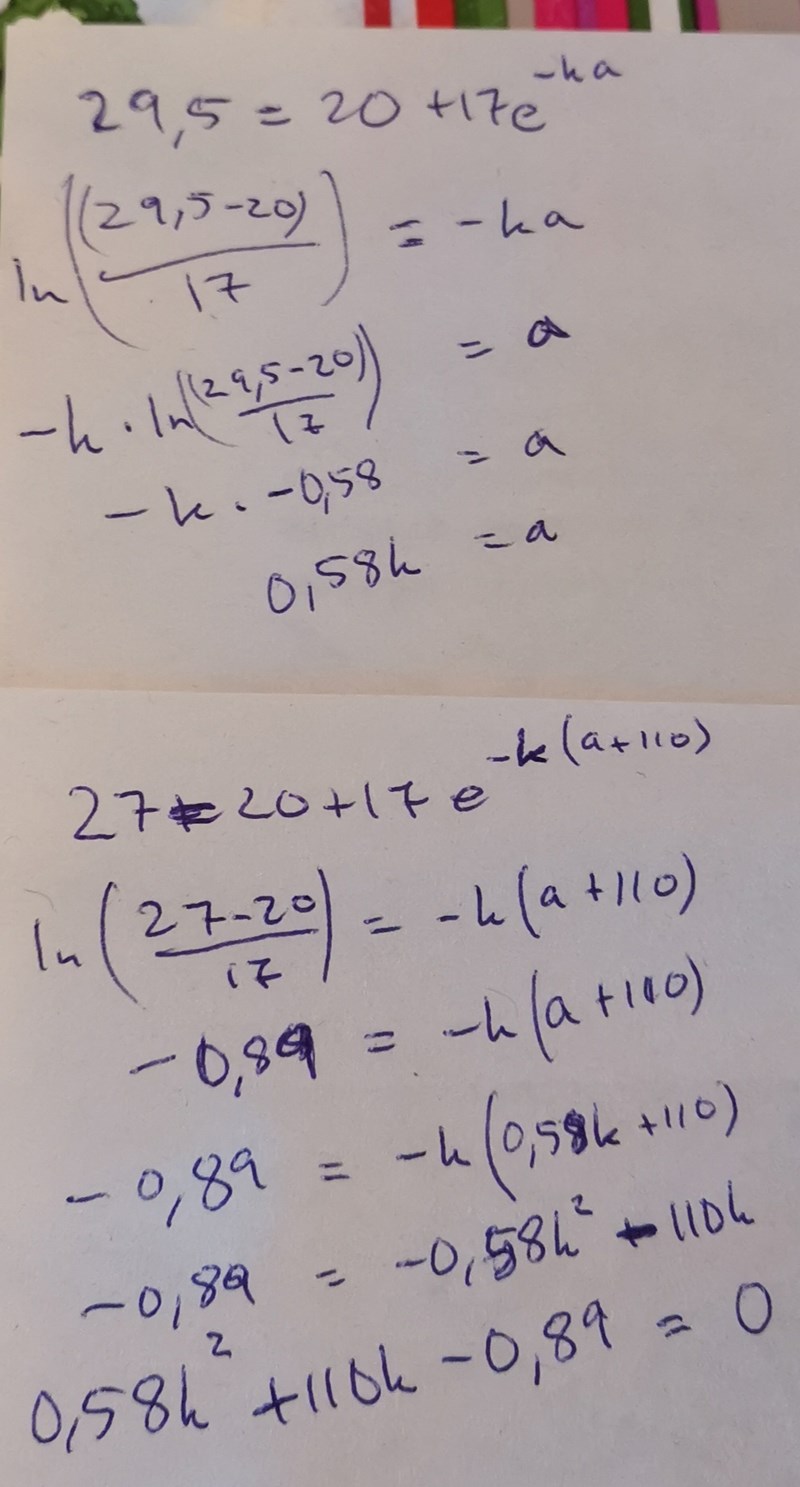 29,5 = 20 + 17e^{-ka}
ln((29,5-20)/17) = -ka
-k · ln((29,5-20)/17) = a
-k · -0,58 = a
0,58k = a
27 = 20 + 17 e^{-k(a+110)}
ln(27-20/17) = -k(a+110)
-0,89 = -k(a+110)
-0,89 = -k(0,58k + 110)
-0,89 = -0,58k² - 110k
0,58k² + 110k - 0,89 = 0